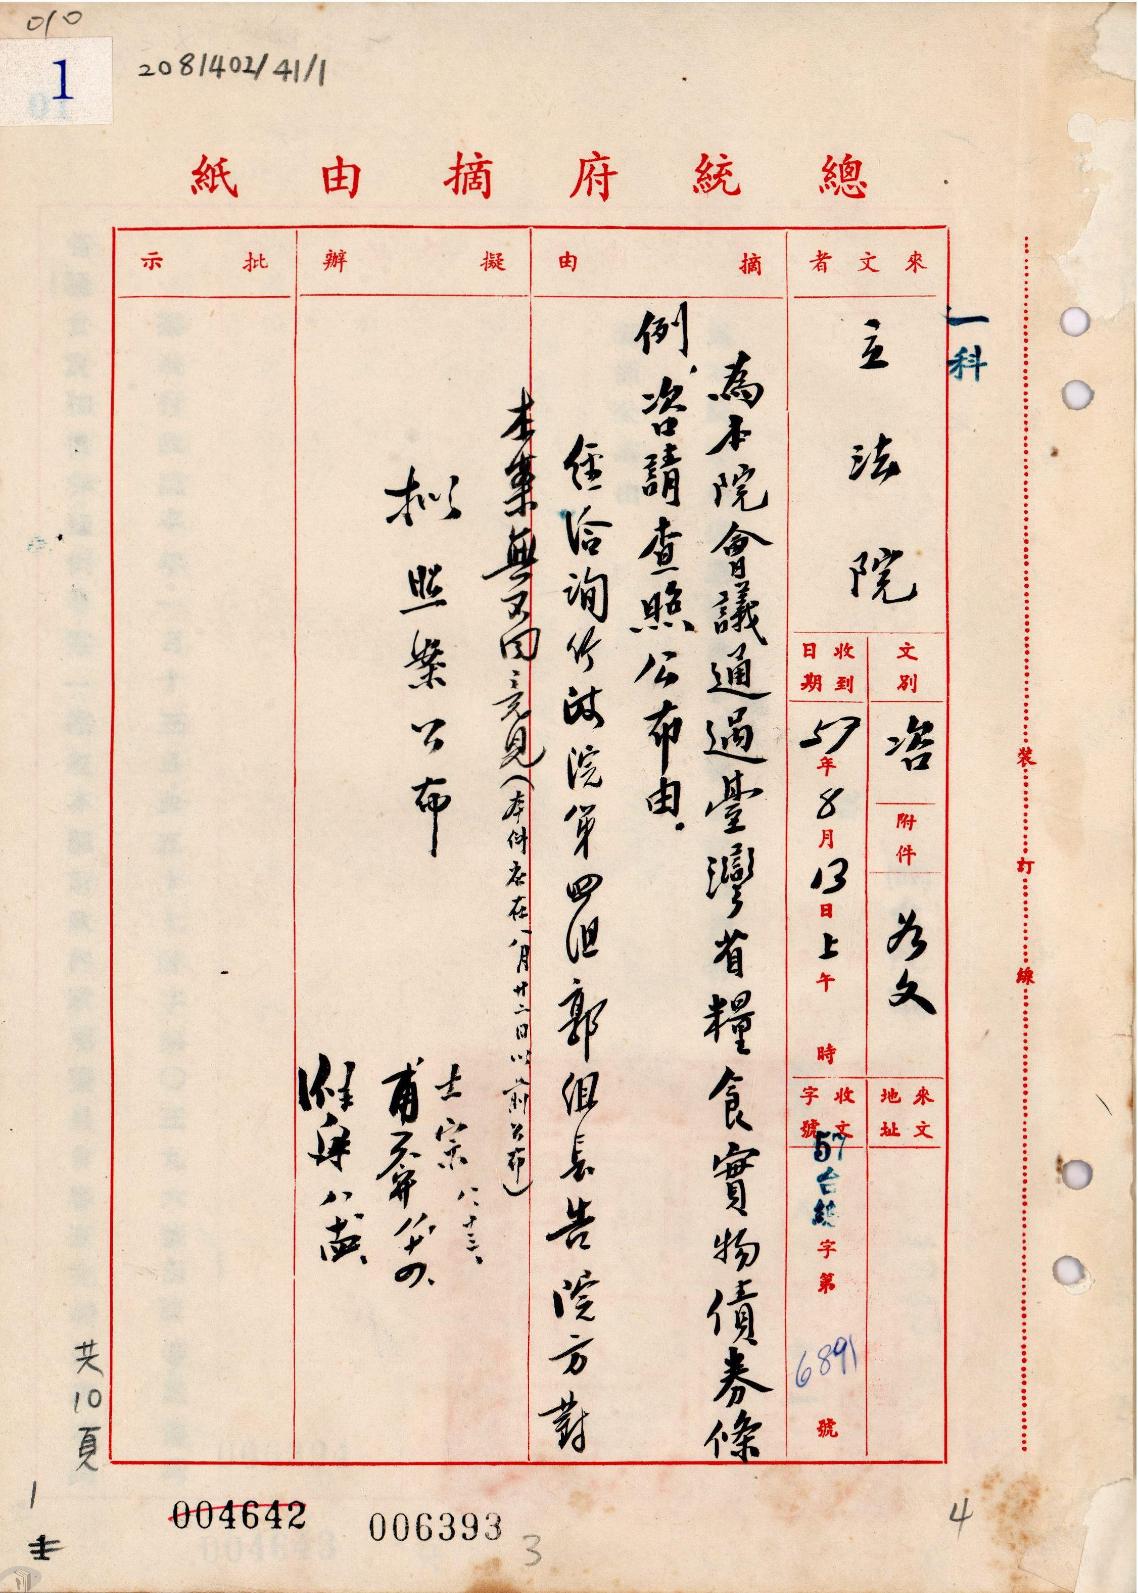 010
1
2081402/41/1
總統府摘由紙
來文者
立法院
一科
文別
咨
附件
如文
來文地址
收到日期
57年8月13日上午 時
收文字號
57台統字第6891號
摘由
為本院會議通過臺灣省糧食實物債券條
例,咨請查照公布由。
經洽詢行政院第四組郭組長告院方對
本案無不同意見(本件應在八月廿二日以前公布)
擬辦
擬照案公布
士宗 八、十三、
批示
裝訂線
共10頁
1
004642
006393
3
4